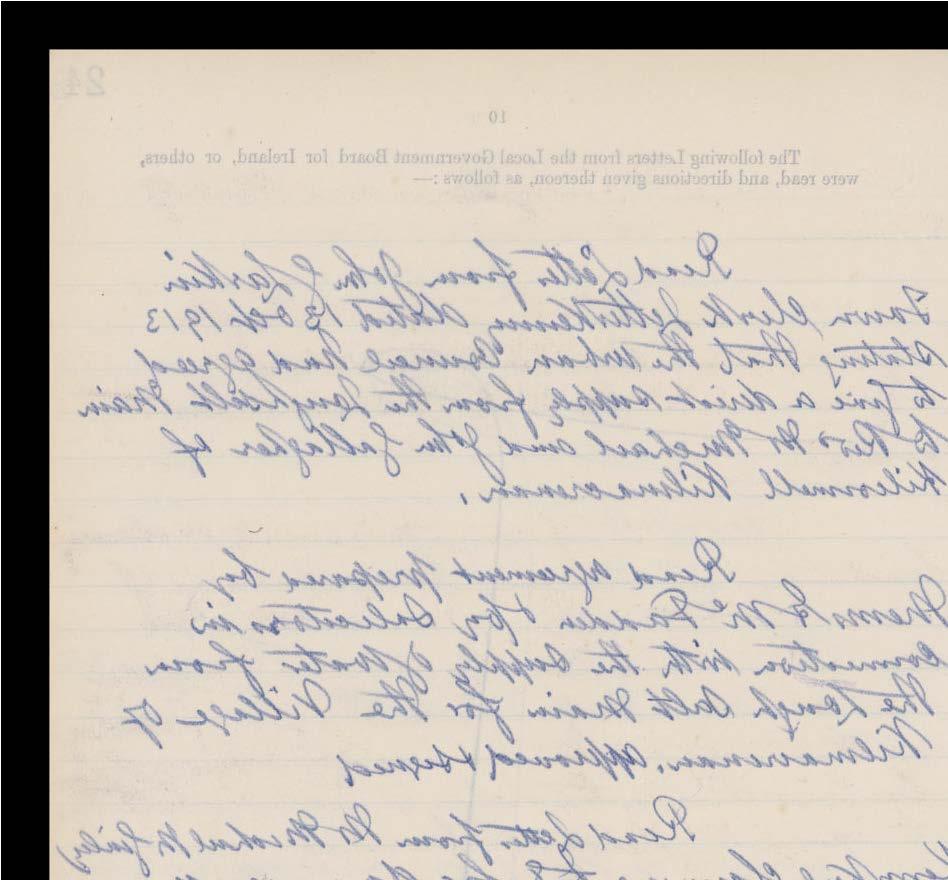 24
10
The following Letters from the Local Government Board for Ireland, or others,
were read, and directions given thereon, as follows :—
Read Letter from John J Larkin
Town Clerk Letterkenny dated 13 Oct 1913
stating that the Urban Council had agreed
to give a direct supply from the Loughsalt Main
to Rev W Michael and John Gallagher of
Kilconnell Kilmacrenan.
Read agreement prepared by
Solicitors in
connection with the supply of Water from
the Lough Salt Main for the Village of
Kilmacrenan. Approved & signed
Read Letter from